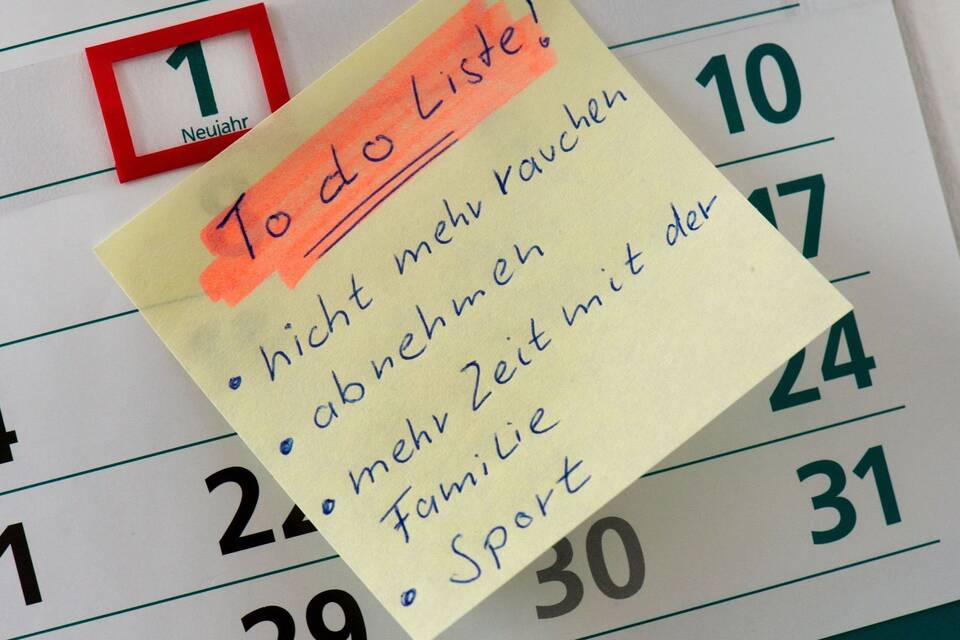 1
Neujahr
To do Liste!
• nicht mehr rauchen
• abnehmen
• mehr Zeit mit der
Familie
• Sport
10
17
24
31
22
29
30